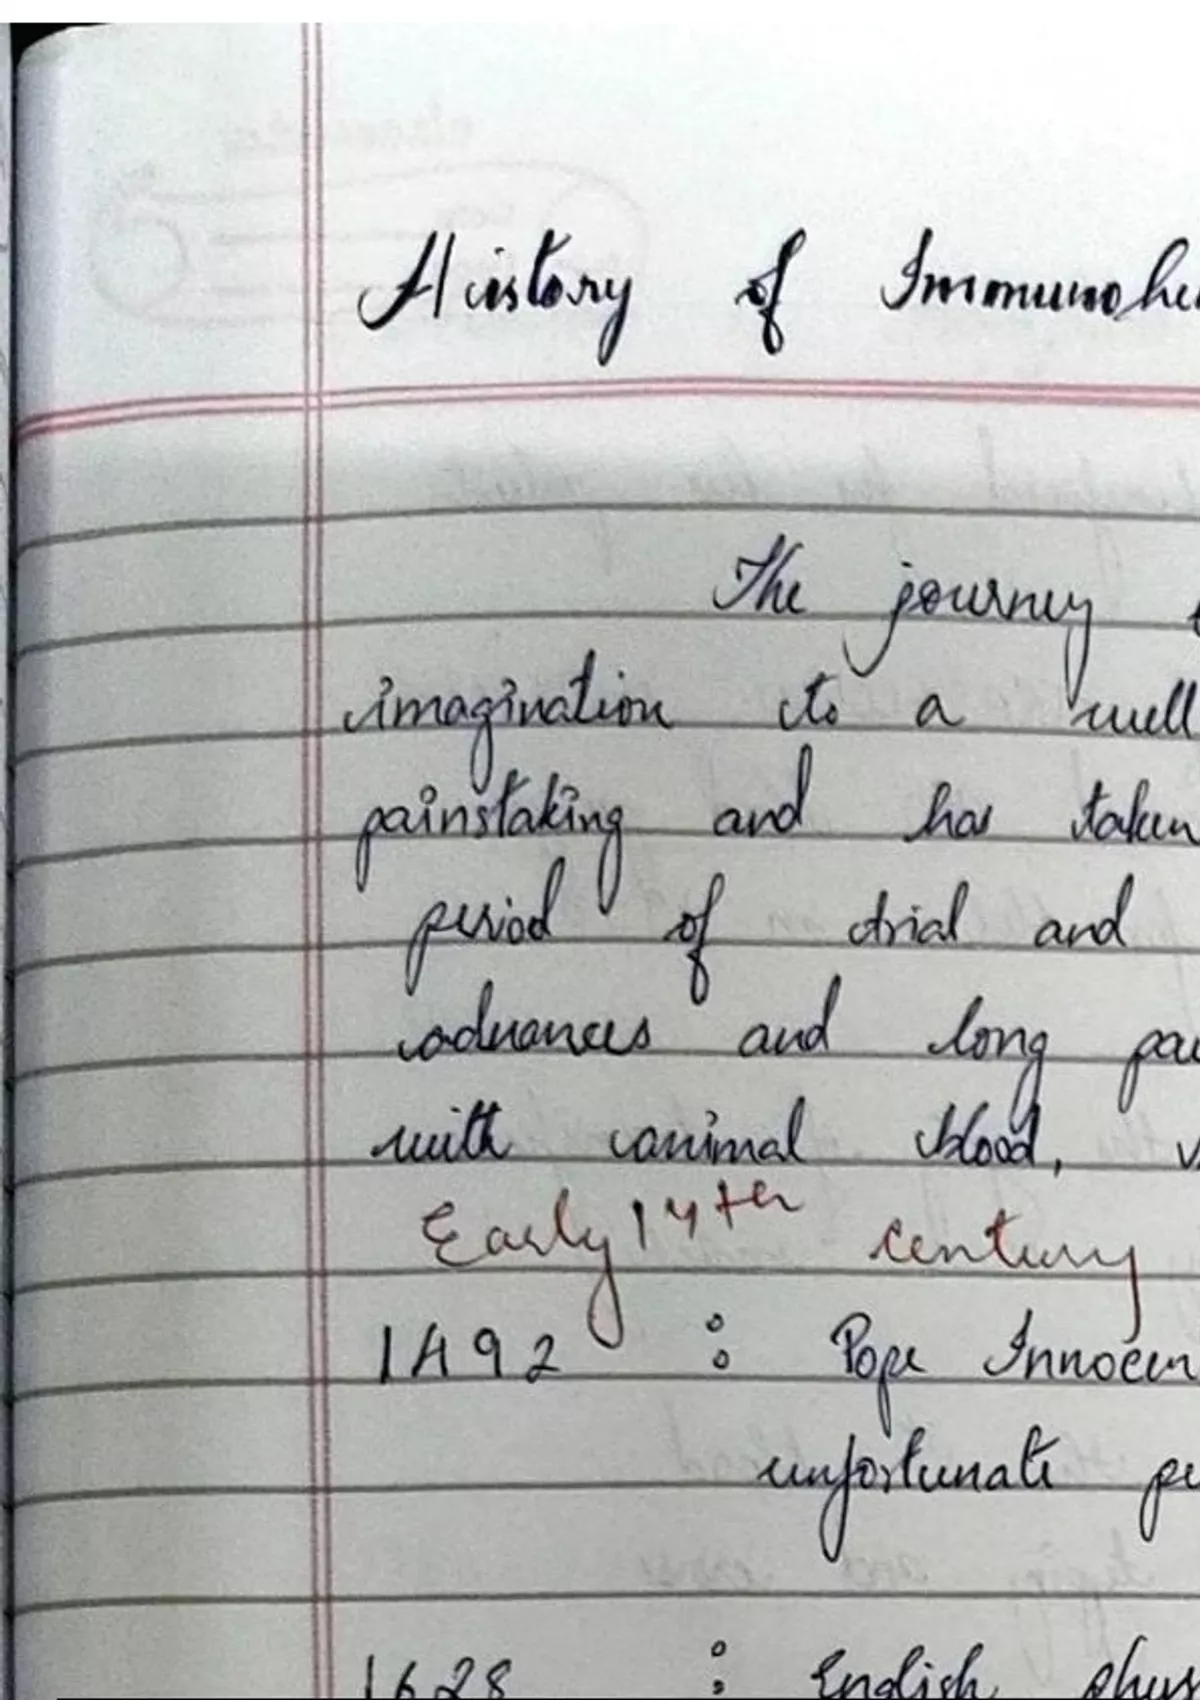 History of Immunohe
The journey
imagination to a well
painstaking and has taken
period of trial and
advances and long pau
with animal blood,
Early 14th century
1492 : Pope Innocen
unfortunate pe
1628 : English phys